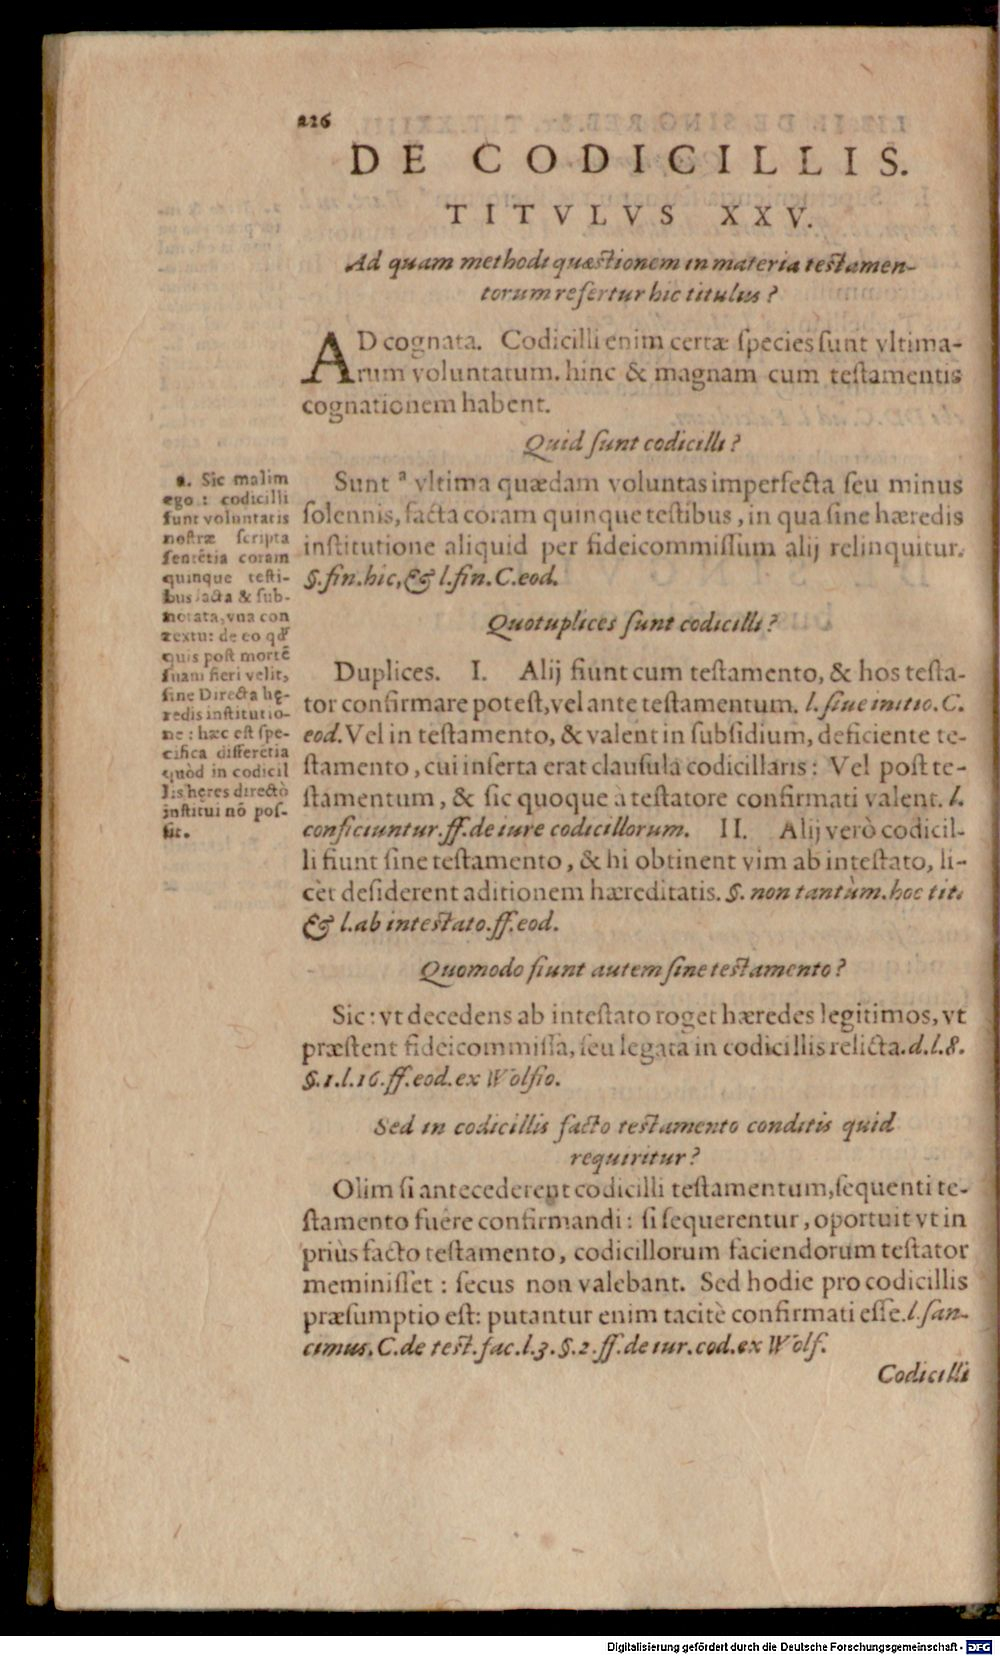 226
DE CODICILLIS.
TITVLVS XXV.
Ad quam methodi quæstionem in materia testamen-
torum refertur hic titulus?
AD cognata. Codicilli enim certæ ſpecies ſunt vltima-
rum voluntatum. hinc & magnam cum teſtamentis
cognationem habent.
Quid ſunt codicilli?
Sunt ª vltima quædam voluntas imperfecta ſeu minus
ſolennis, facta coram quinque teſtibus, in qua ſine hæredis
inſtitutione aliquid per fideicommiſſum alij relinquitur.
§. fin. hic, & l. fin. C. eod.
Quotuplices ſunt codicilli?
Duplices. I. Alij fiunt cum teſtamento, & hos teſta-
tor confirmare poteſt, vel ante teſtamentum. l. ſiue initio. C.
eod. Vel in teſtamento, & valent in ſubſidium, deficiente te-
ſtamento, cui inſerta erat clauſula codicillaris: Vel poſt te-
ſtamentum, & ſic quoque à teſtatore confirmati valent. l.
conficiuntur. ff. de iure codicillorum. II. Alij verò codicil-
li fiunt ſine teſtamento, & hi obtinent vim ab inteſtato, li-
cèt deſiderent aditionem hæreditatis. §. non tantùm. hoc tit.
& l. ab inteſtato. ff. eod.
Quomodo fiunt autem ſine teſtamento?
Sic: vt decedens ab inteſtato roget hæredes legitimos, vt
præſtent fideicommiſſa, ſeu legata in codicillis relicta. d. l. 8.
§. 1. l. 16. ff. eod. ex Wolfio.
Sed in codicillis facto teſtamento conditis quid
requiritur?
Olim ſi antecederent codicilli teſtamentum, ſequenti te-
ſtamento fuêre confirmandi: ſi ſequerentur, oportuit vt in
priùs facto teſtamento, codicillorum faciendorum teſtator
meminiſſet: ſecus non valebant. Sed hodie pro codicillis
præſumptio eſt: putantur enim tacitè confirmati eſſe. l. ſan-
cimus. C. de teſt. fac. l. 3. §. 2. ff. de iur. cod. ex Wolf.
Codicilli
a. Sic malim
ego: codicilli
ſunt voluntatis
noſtræ ſcripta
ſentētia coram
quinque teſti-
bus facta & ſub-
notata, vna con
textu: de eo qđ
quis poſt mortē
ſuam fieri velit,
ſine Directa hę-
redis inſtitutio-
ne: hæc eſt ſpe-
cifica differētia
quòd in codicil
lis hęres directò
inſtitui nō poſ-
ſit.
Digitalisierung gefördert durch die Deutsche Forschungsgemeinschaft - DFG